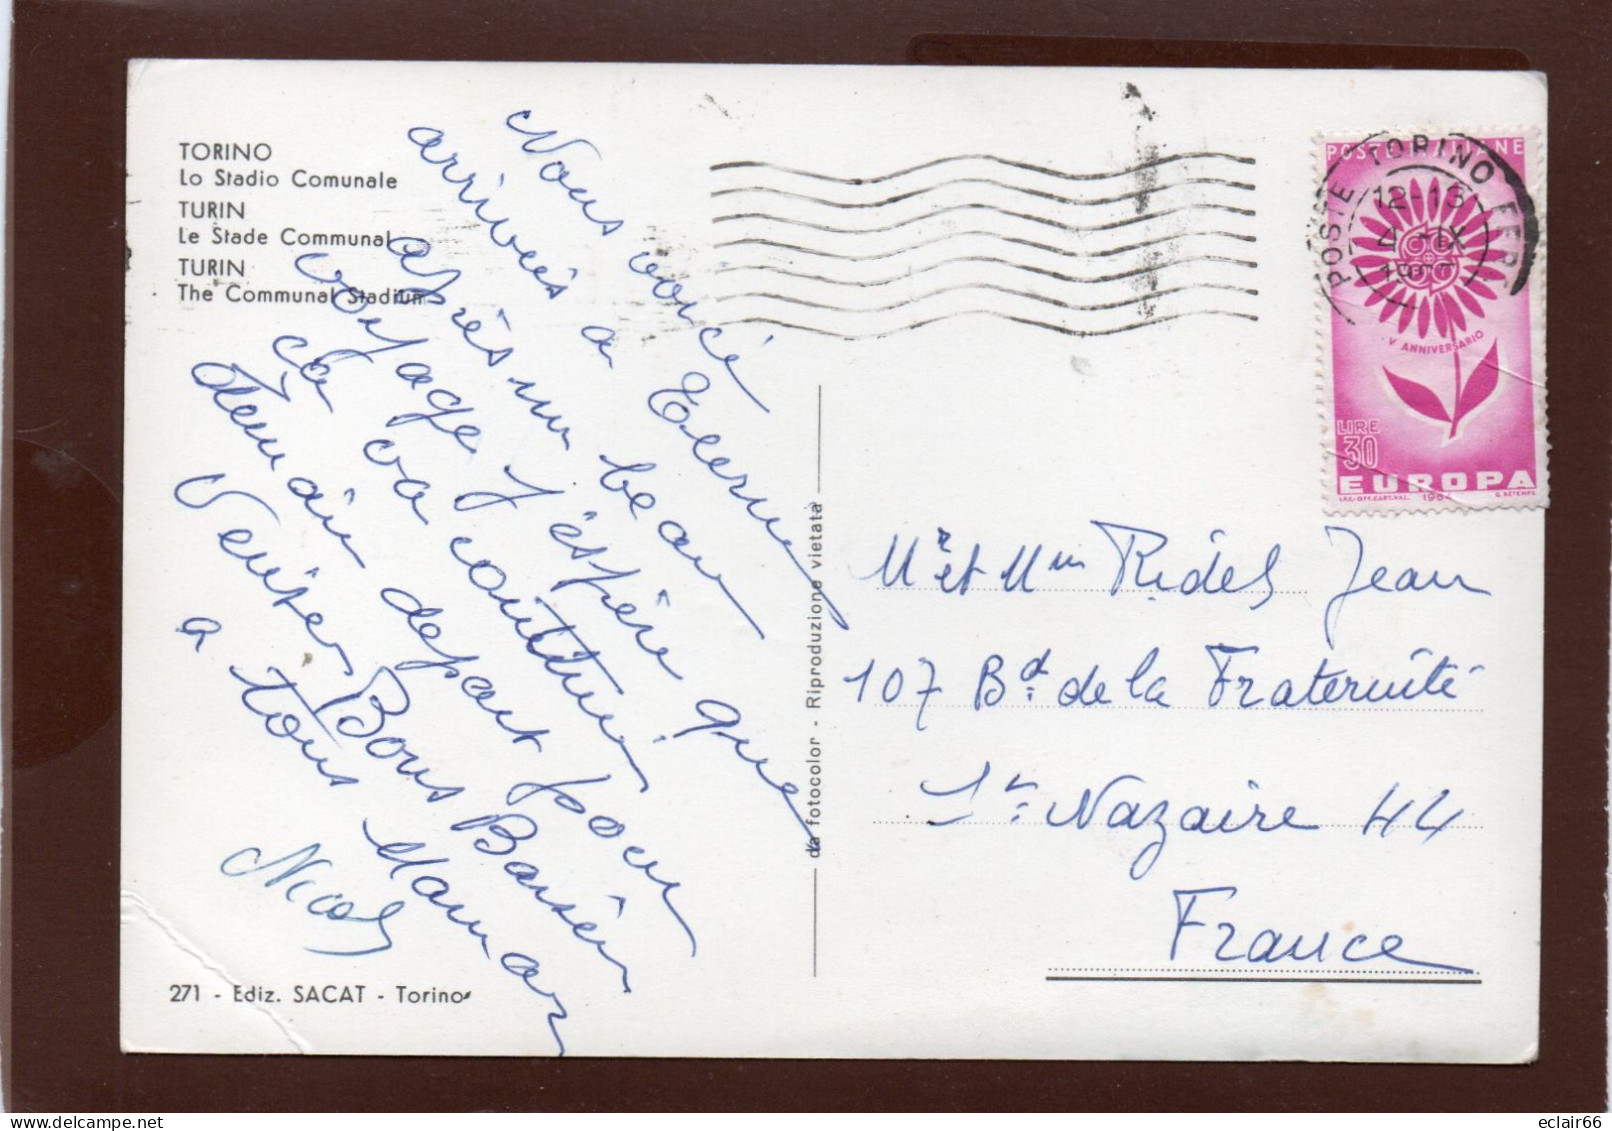 TORINO
Lo Stadio Comunale
TURIN
Le Stade Communal
TURIN
The Communal Stadium
Nous voici
arrivés a
après un beau
voyage J'éspère que
ça va continuer
demain depart pour
Venise Bons Baisers
a tous Maman
Nicole
271 - Ediz. SACAT - Torino
da fotocolor - Riproduzione vietata
POSTE TORINO FERR
12-13
4 -IX
POSTE ITALIANE
V ANNIVERSARIO
LIRE
30
EUROPA
I.P.S.-OFF.CART.VAL. 1964 G. BETEMPS
Mr et Mm Ridel Jean
107 Bd. de la Fraternité
St. Nazaire 44
France
eclair66